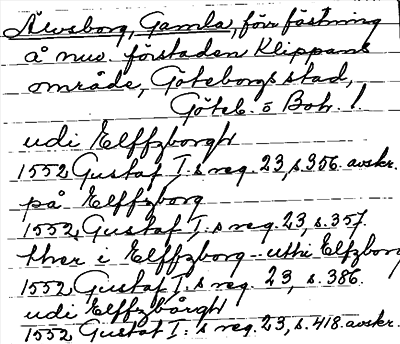 Älvsborg, Gamla, förr fästning
å nuv. förstaden Klippans
område, Göteborgs stad,
Göteb. o Boh. l.
udi Elffzborgh
1552 Gustaf I:s reg. 23, s. 356. avskr.
på Elffzborg
1552 Gustaf I:s reg. 23, s. 357.
ther i Elffzborg - uthi Elfzborg
1552 Gustaf I:s reg. 23, s. 386.
udi Elffzbårgh
1552 Gustaf I:s reg. 23, s. 418. avskr.